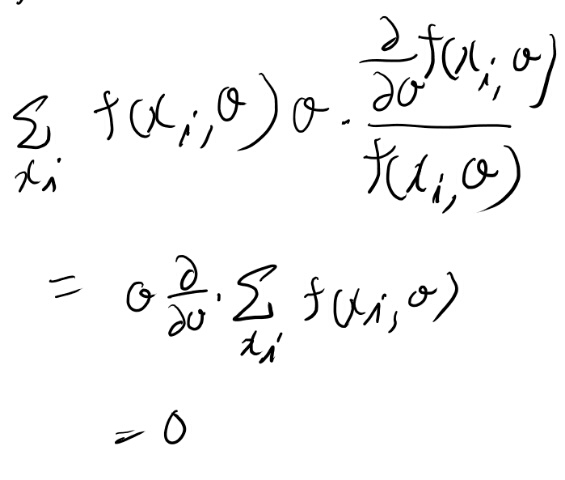 $\sum_{x_i} f(x_i, \theta) \theta \cdot \frac{\frac{\partial}{\partial \theta} f(x_i, \theta)}{f(x_i, \theta)}$
$= \theta \frac{\partial}{\partial \theta} \cdot \sum_{x_i} f(x_i, \theta)$
$= 0$